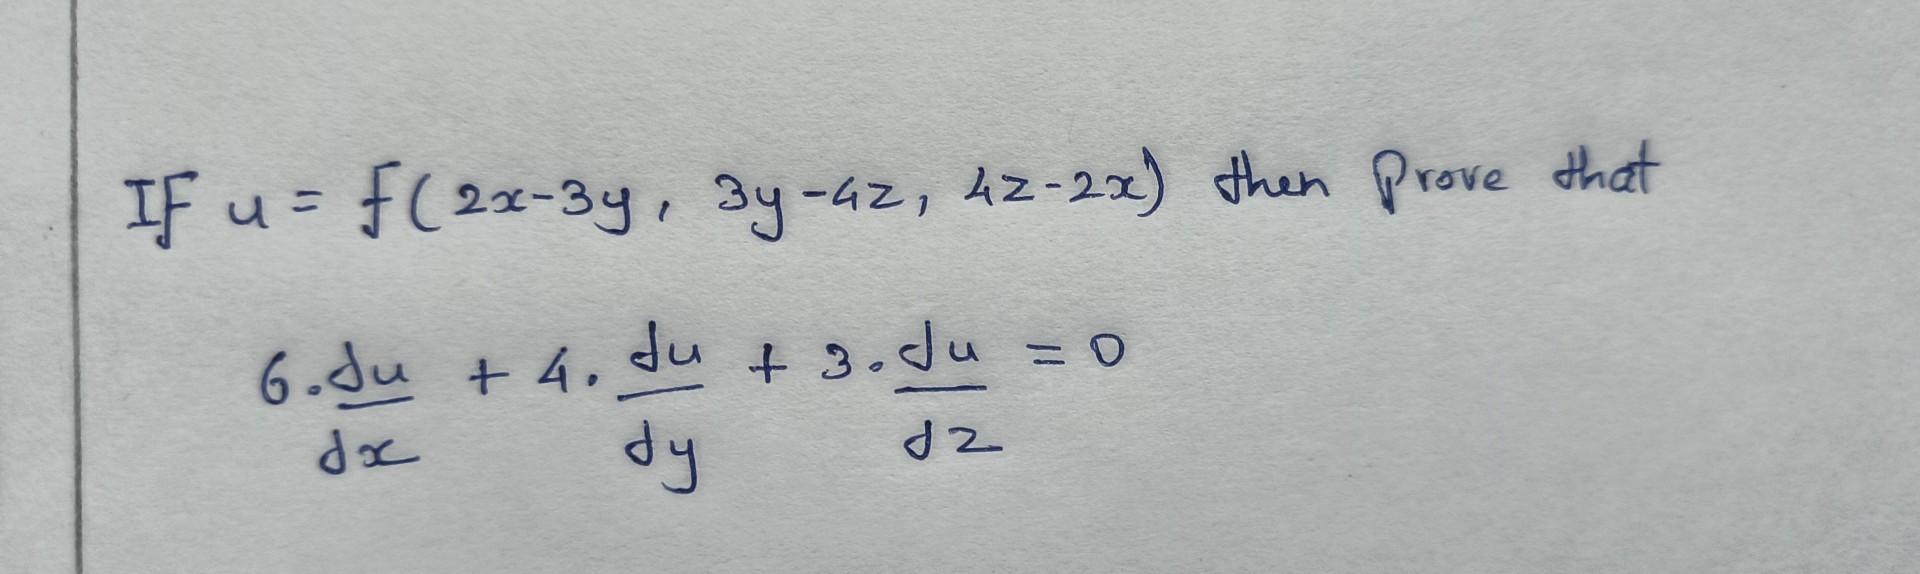 If u = f(2x-3y, 3y-4z, 4z-2x) then Prove that
6.du/dx + 4.du/dy + 3.du/dz = 0